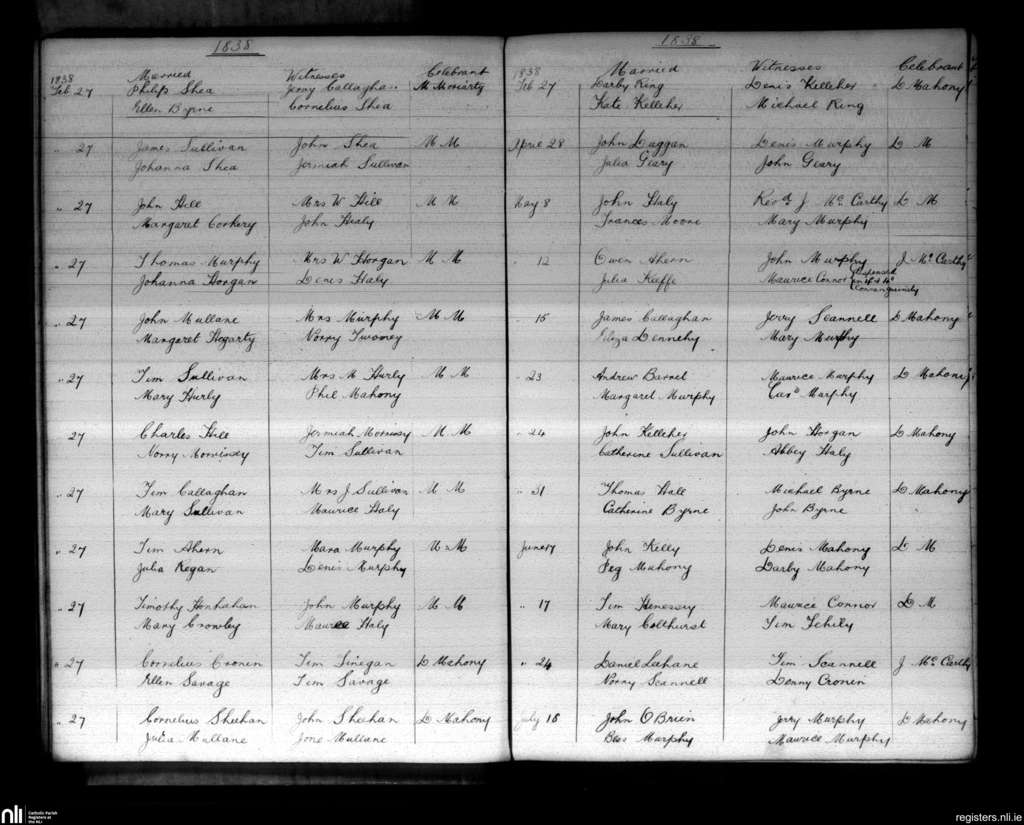 1838
1838 Married Witnesses Celebrant
Feb 27 Philip Shea Jerry Callaghan M Moriarty
Ellen Byrne Cornelius Shea
" 27 James Sullivan John Shea M M
Johanna Shea Jermiah Sullivan
" 27 John Hill Mrs W Hill M M
Margaret Corkery John Healy
" 27 Thomas Murphy Mrs W Horgan M M
Johanna Horgan Denis Haly
" 27 John Mullane Mrs Murphy M M
Margaret Hogarty Norry Twomey
" 27 Tim Sullivan Mrs M Hurly M M
Mary Hurly Phil Mahony
27 Charles Hill Jermiah Morrissy M M
Norry Morrissey Tim Sullivan
" 27 Tim Callaghan Mrs J Sullivan M M
Mary Sullivan Maurice Haly
" 27 Tim Ahern Mara Murphy M M
Julia Regan Denis Murphy
" 27 Timothy Honhahan John Murphy M M
Mary Crowley Maurice Haly
" 27 Cornelius Cronen Tim Finegan D Mahony
Ellen Savage Tim Savage
" 27 Cornelius Sheehan John Sheehan D Mahony
Julia Mullane Jone Mullane
1838
1838 Married Witnesses Celebrant
Feb 27 Darby Ring Denis Kelleher D Mahony
Kate Kelleher Michael Ring
April 28 John Duggan Denis Murphy D M
Julia Geary John Geary
May 8 John Haly Revd J McCarthy D M
Frances Moore Mary Murphy
" 12 Owen Ahern John Murphy J McCarthy
Julia Keeffe Maurice Connor Dispensed
in 4 & 4o
Consanguinity
" 15 James Callaghan Jerry Scannell D Mahony
Eliza Dennehy Mary Murphy
" 23 Andrew Barret Maurice Murphy D Mahony
Margaret Murphy Murphy
" 24 John Kelleher John Horgan D Mahony
Catherine Sullivan Abbey Haly
" 31 Thomas Hall Michael Byrne D Mahony
Catherine Byrne John Byrne
June 17 John Kelly Denis Mahony D M
Peg Mahony Darby Mahony
" 17 Tim Henessy Maurice Connor D M
Mary Colthurst Tim Fehily
" 24 Daniel Lahane Tim Scannell J McCarthy
Norry Scannell Denny Cronen
July 15 John O Brien Jerry Murphy D Mahony
Bess Murphy Maurice Murphy
nli
Catholic Parish
Registers at
the NLI
registers.nli.ie